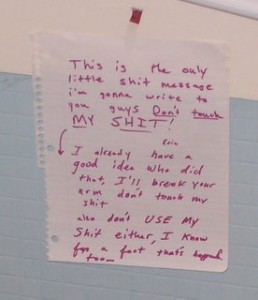 This is the only
little shit message
i'm gonna write to
you guys Don't touch
MY SHIT!
I already have a
good idea who did
that, I'll break your
arm don't touch my
shit
also don't USE MY
Shit either, I know
for a fact that's happened
too